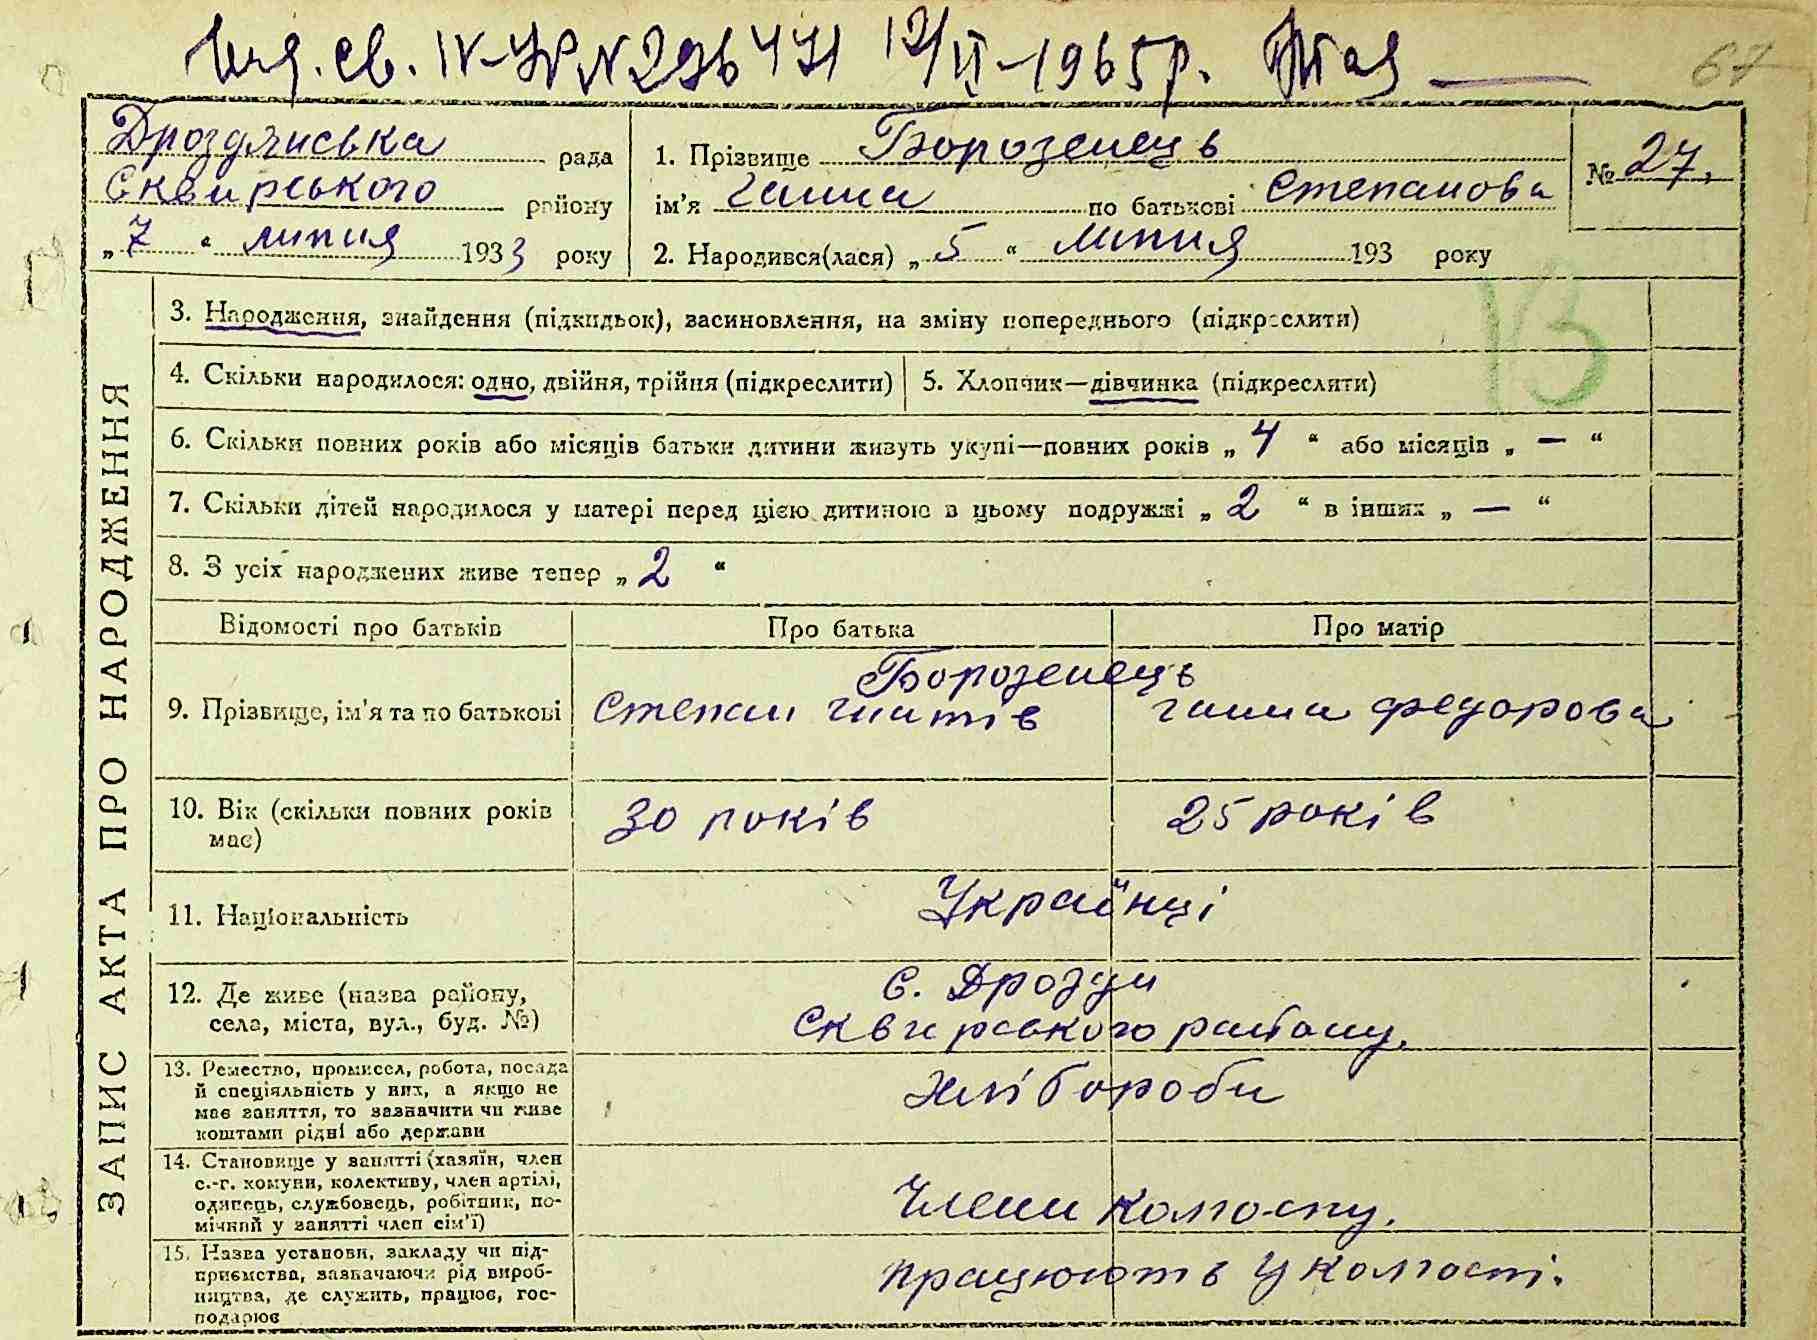 св. IV-УР N 296471 12/II-1965р.
67
Дроздянська рада
Сквирського району
„ 7 “ липня 1933 року
1. Прізвище Борозенець
ім'я Ганна по батькові Степанова
2. Народився(лася) „ 5 “ липня 193 року
№ 27.
ЗАПИС АКТА ПРО НАРОДЖЕННЯ
3. Народження, знайдення (підкидьок), засиновлення, на зміну попереднього (підкреслити)
13
4. Скільки народилося: одно, двійня, трійня (підкреслити)
5. Хлопчик—дівчинка (підкреслити)
6. Скільки повних років або місяців батьки дитини живуть укупі—повних років „ 4 “ або місяців „ — “
7. Скільки дітей народилося у матері перед цією дитиною в цьому подружжі „ 2 “ в інших „ — “
8. З усіх народжених живе тепер „ 2 “
Відомості про батьків Про батька Про матір
Борозенець
9. Прізвище, ім'я та по батькові Степан Гнатів Ганна Федорова
10. Вік (скільки повних років 30 років 25 років
має)
11. Національність Українці
12. Де живе (назва району, с. Дрозди
села, міста, вул., буд. №) Сквирського району.
13. Ремество, промисел, робота, посада
й спеціяльність у них, а якщо не Хлібороби
має заняття, то зазначити чи живе
коштами рідні або держави
14. Становище у занятті (хазяїн, член
с.-г. комуни, колективу, член артілі,
одинець, службовець, робітник, по- Члени колгоспу.
мічний у занятті член сім'ї)
15. Назва установи, закладу чи під-
приємства, зазначаючи рід вироб- працюють у колгоспі.
ництва, де служить, працює, гос-
подарює